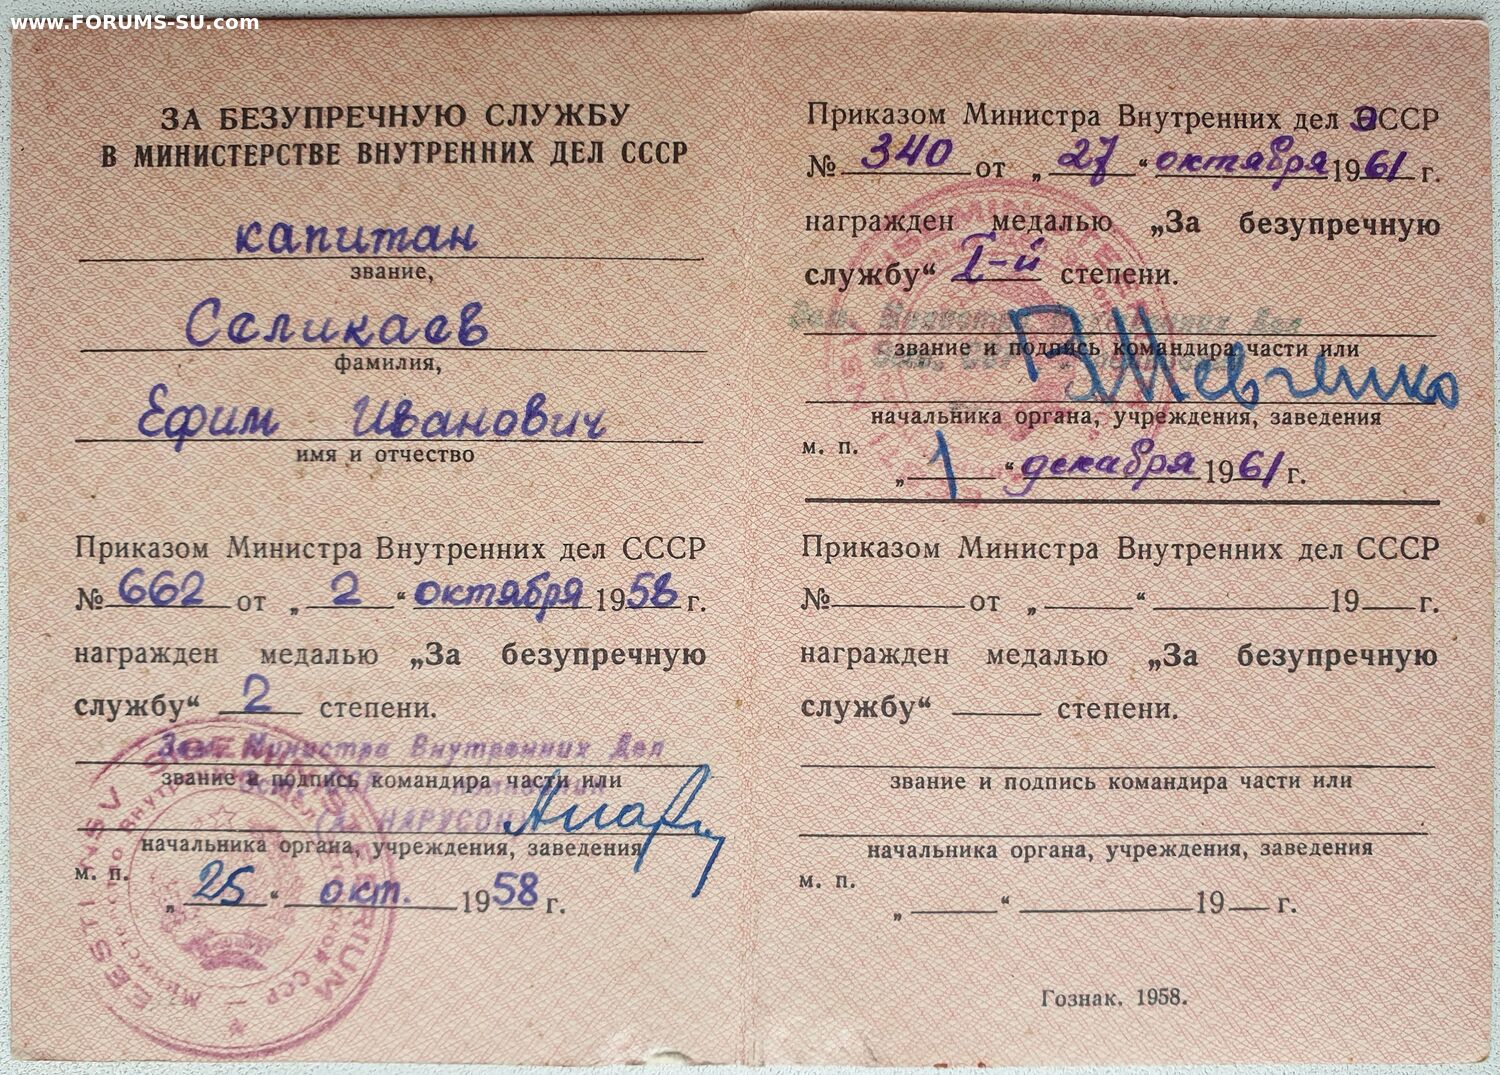 www.FORUMS-SU.com
ЗА БЕЗУПРЕЧНУЮ СЛУЖБУ
В МИНИСТЕРСТВЕ ВНУТРЕННИХ ДЕЛ СССР
капитан
звание,
Селикаев
фамилия,
Ефим Иванович
имя и отчество
Приказом Министра Внутренних дел СССР
№ 662 от „ 2 “ октября 1958 г.
награжден медалью „За безупречную
службу“ 2 степени.
Зам. Министра Внутренних Дел
звание и подпись командира части или
НАРУСОН
начальника органа, учреждения, заведения
м. п.
„ 25 “ окт. 1958 г.
EESTI NSV SISEMINISTEERIUM
Приказом Министра Внутренних дел ЭССР
№ 340 от „ 27 “ октября 1961 г.
награжден медалью „За безупречную
службу“ I-й степени.
Зам. Министра Внутренних Дел
звание и подпись командира части или
Шевченко
начальника органа, учреждения, заведения
м. п.
„ 1 “ декабря 1961 г.
Приказом Министра Внутренних дел СССР
№ от „ “ 19 г.
награжден медалью „За безупречную
службу“ степени.
звание и подпись командира части или
начальника органа, учреждения, заведения
м. п.
„ “ 19 г.
Гознак. 1958.